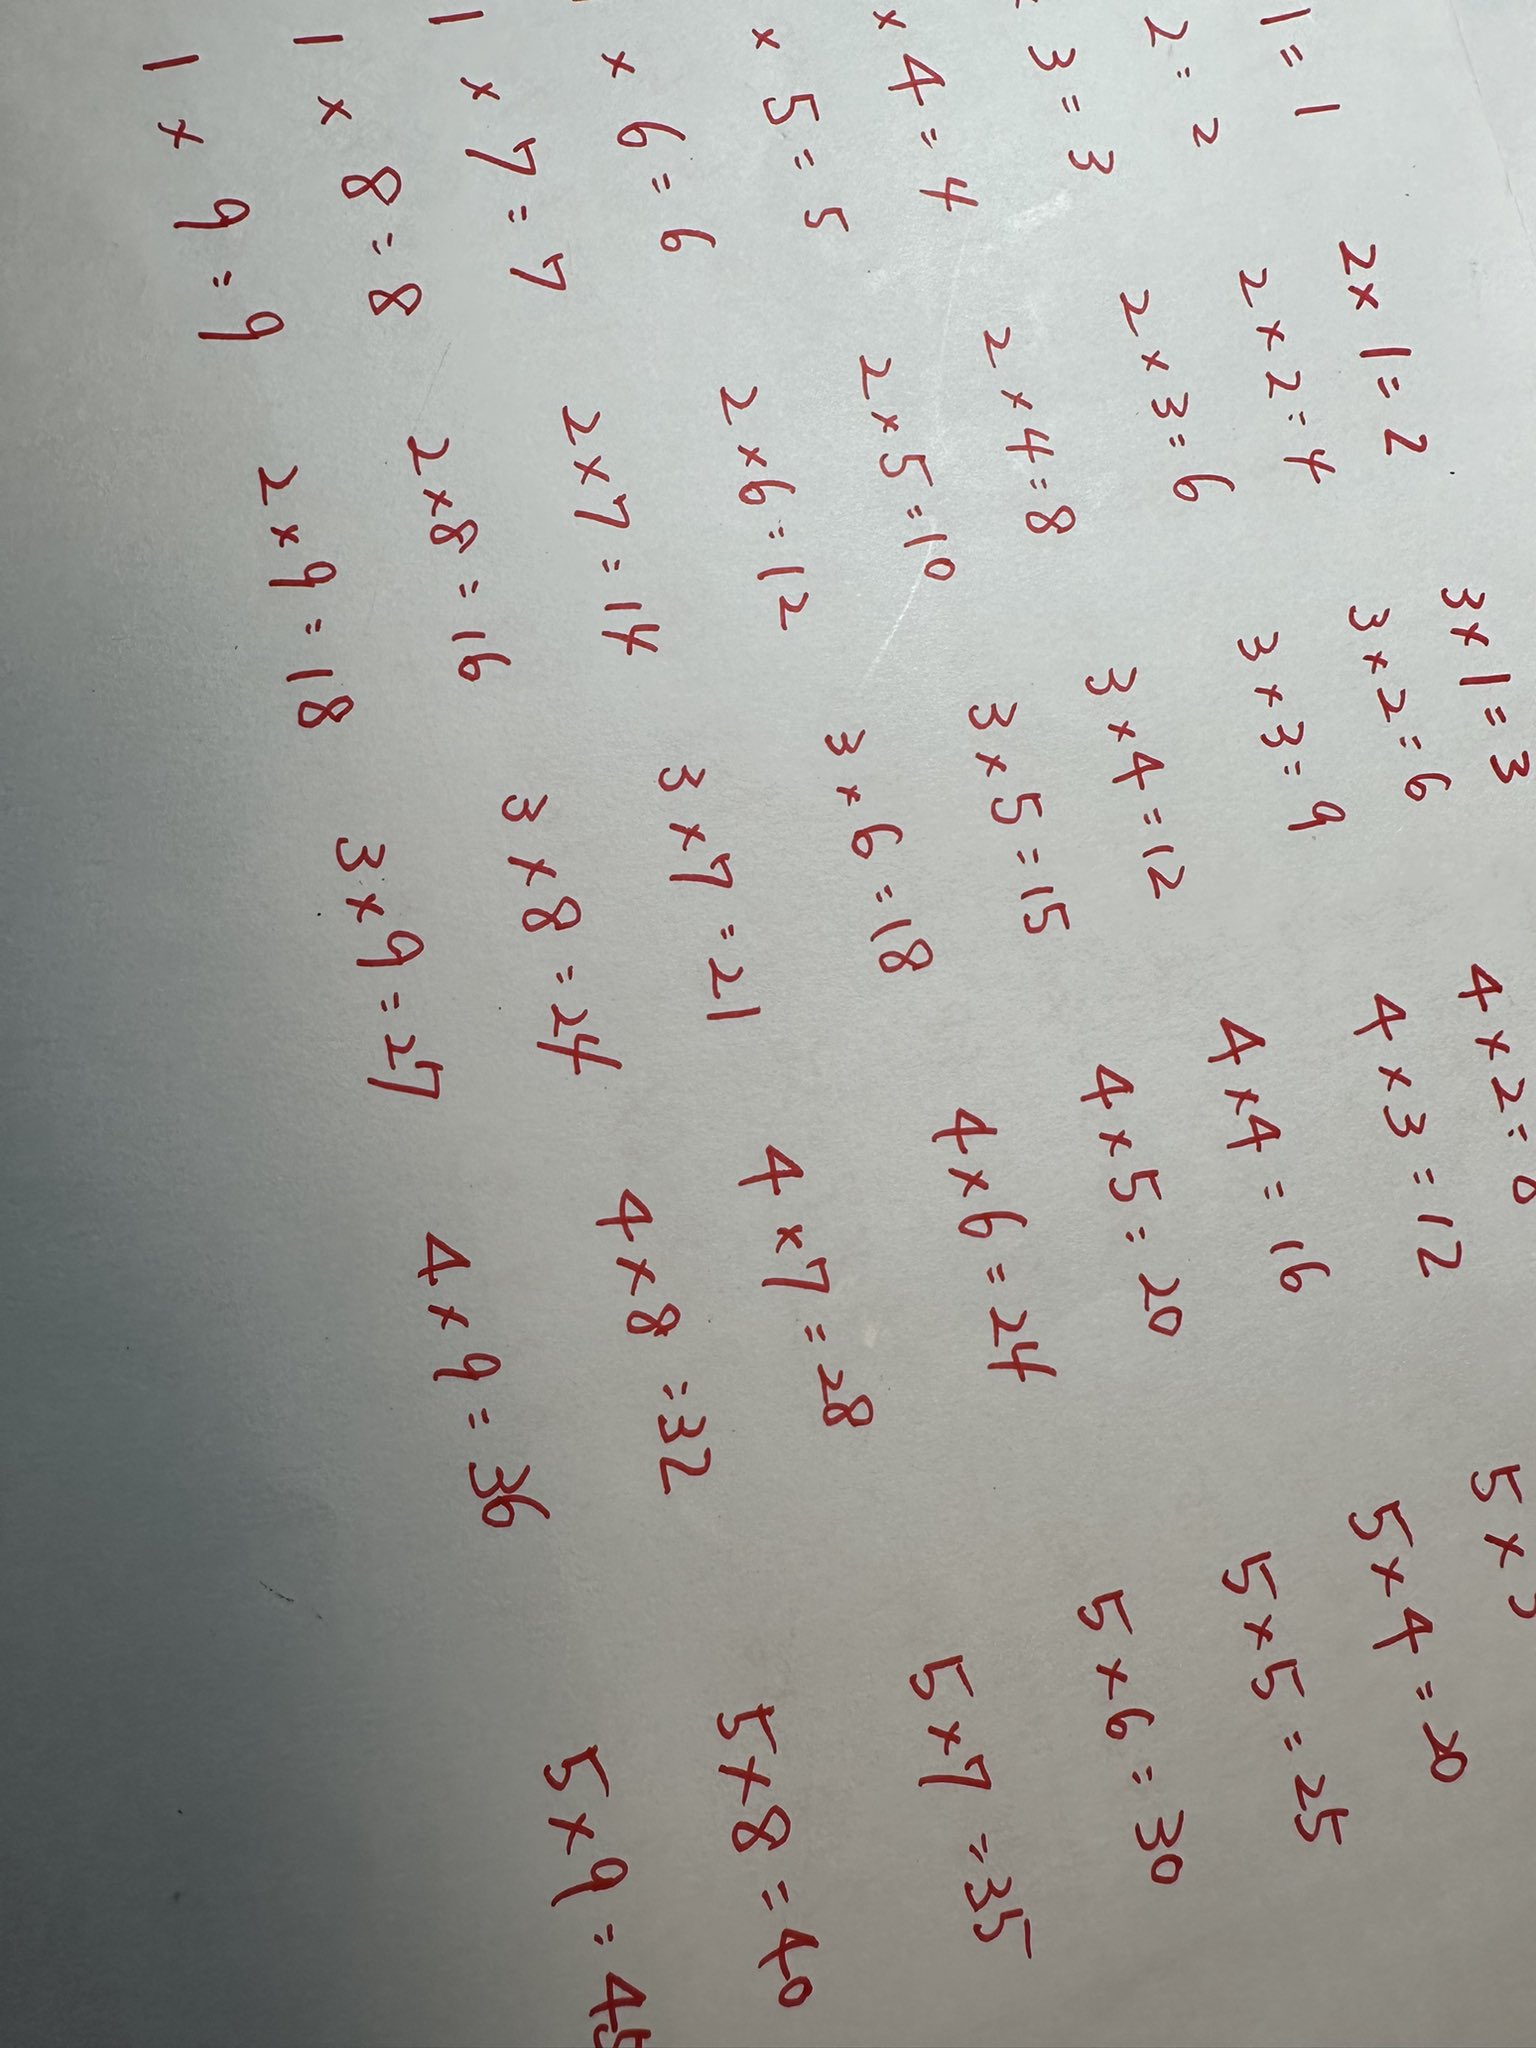 1=1 2×1=2 3×1=3
2=2 2×2=4 3×2=6 4×2=
3=3 2×3=6 3×3=9 4×3=12 5×
×4=4 2×4=8 3×4=12 4×4=16 5×4=20
×5=5 2×5=10 3×5=15 4×5=20 5×5=25
×6=6 2×6=12 3×6=18 4×6=24 5×6=30
1×7=7 2×7=14 3×7=21 4×7=28 5×7=35
1×8=8 2×8=16 3×8=24 4×8=32 5×8=40
1×9=9 2×9=18 3×9=27 4×9=36 5×9=45